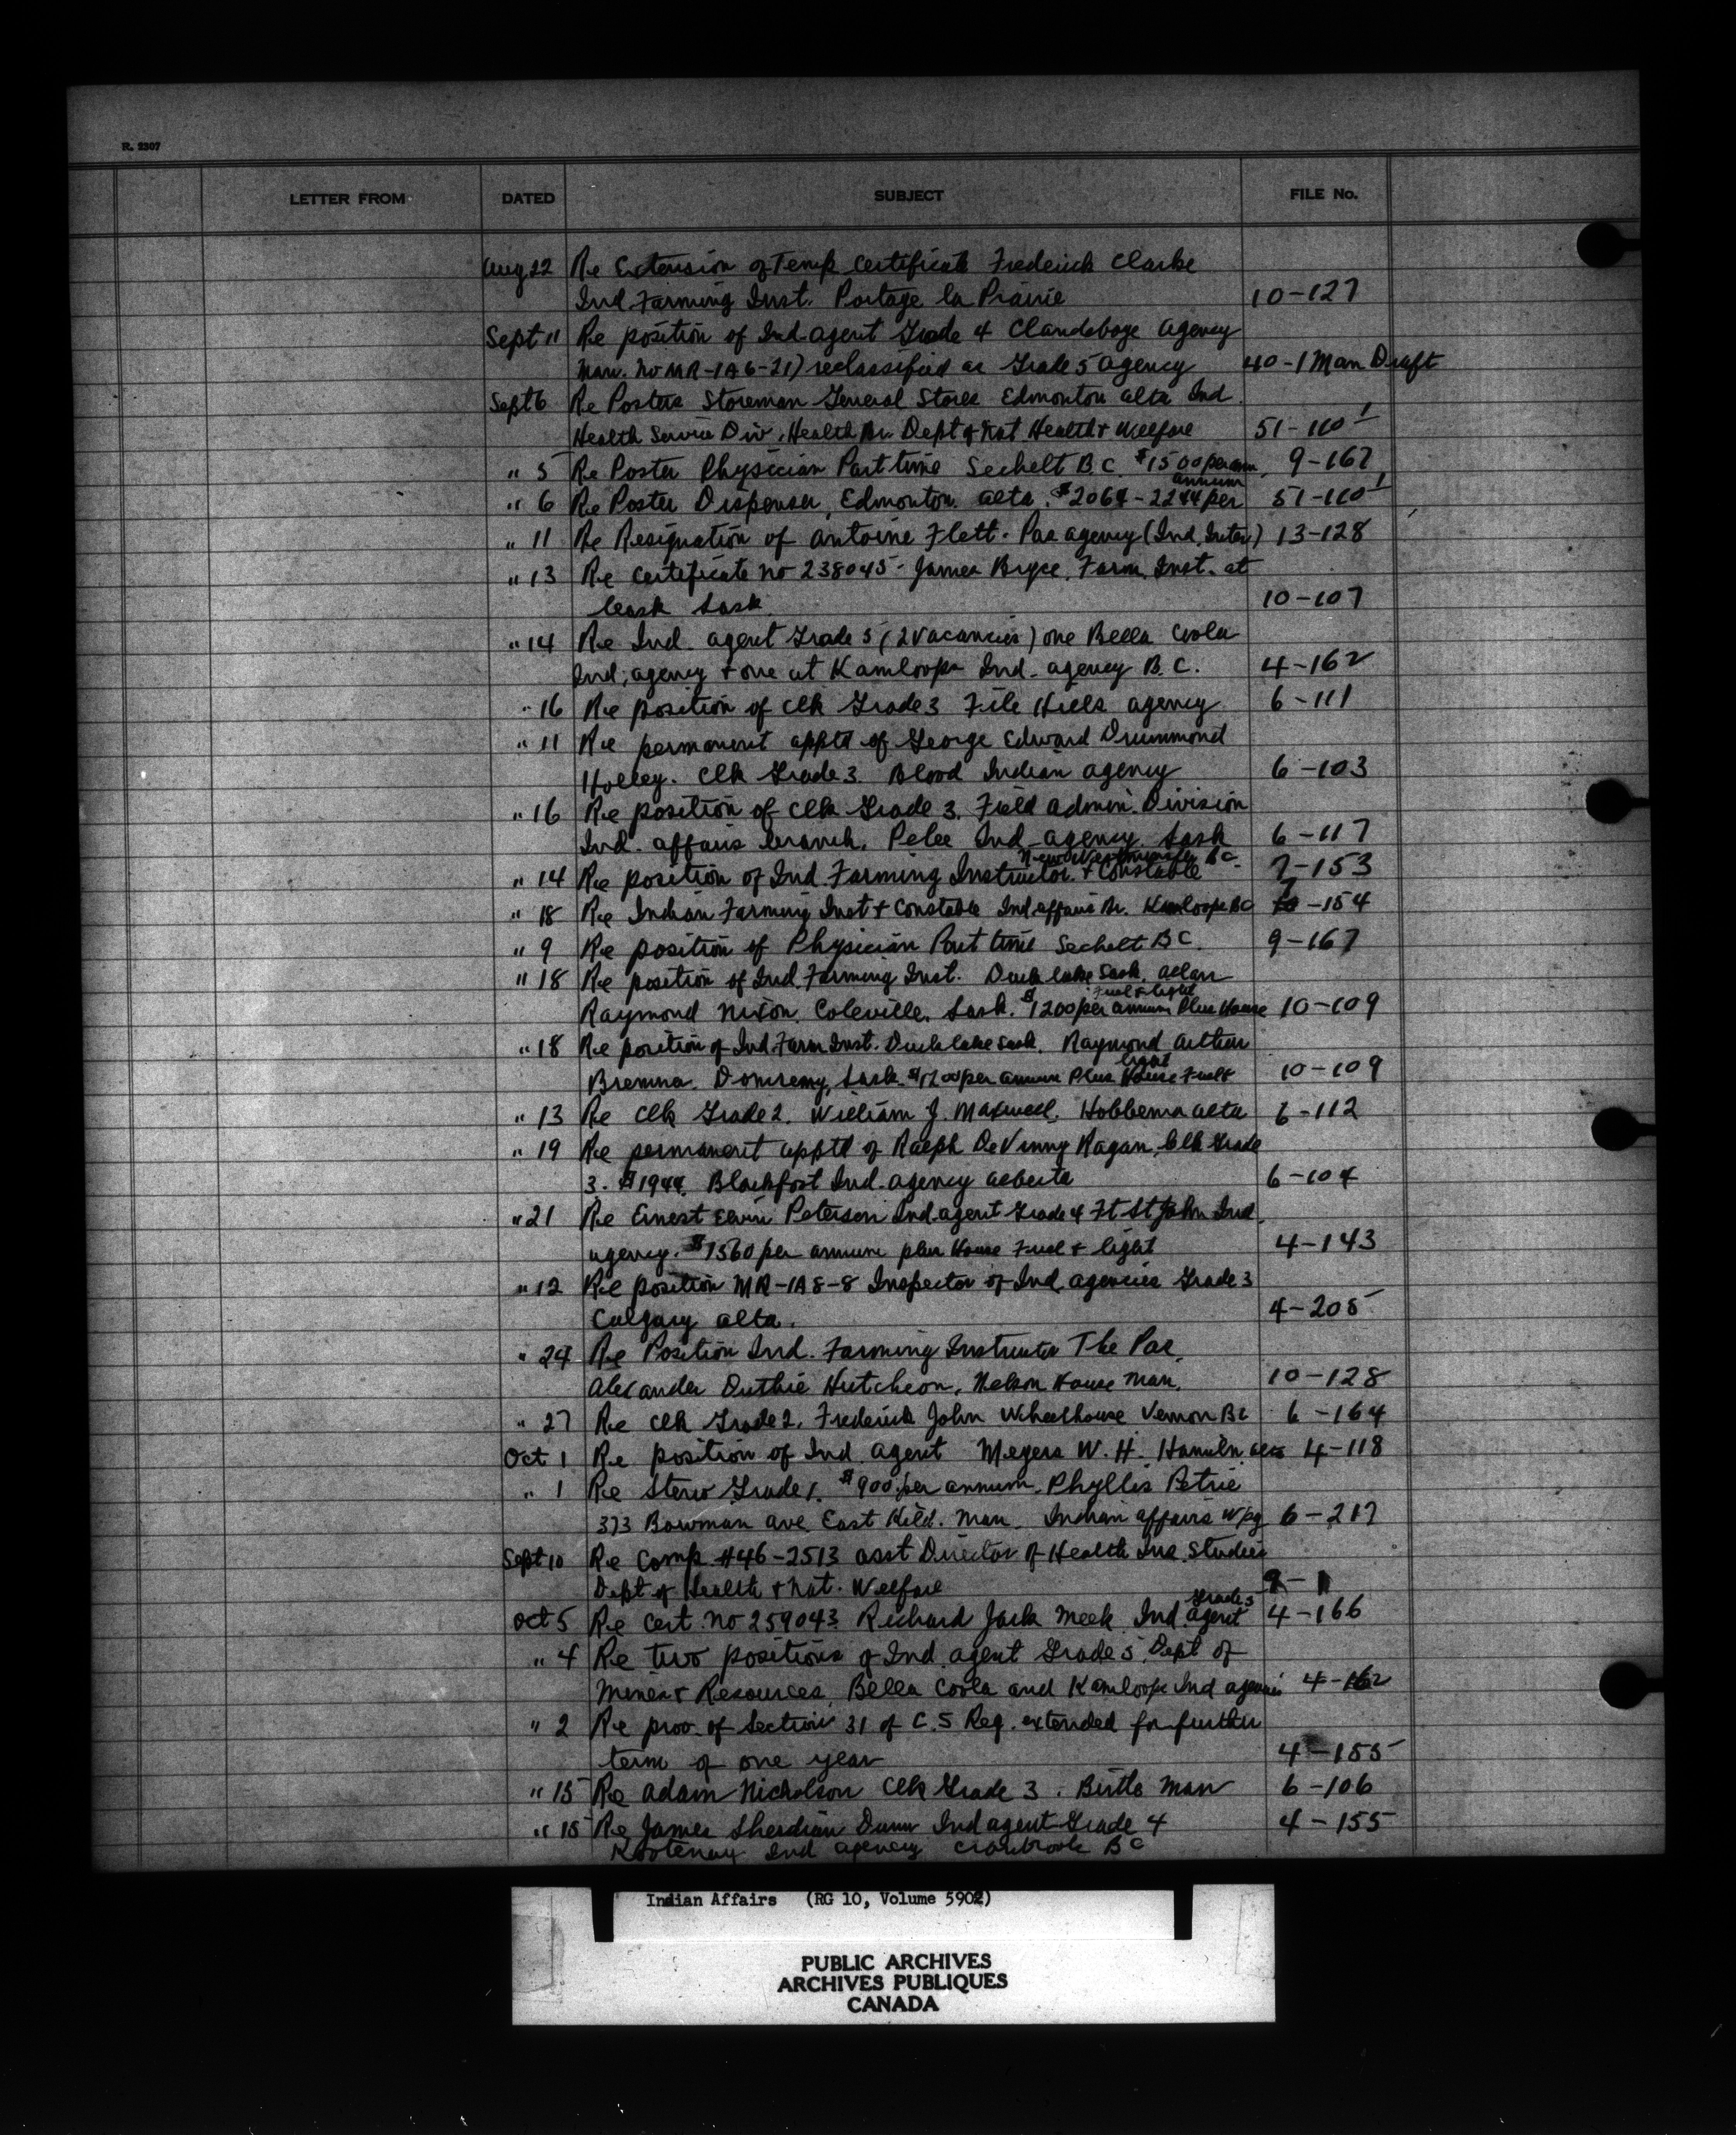 R. 2307
LETTER FROM DATED SUBJECT FILE No.
Aug 22 Re Extension of Temp Certificate Frederick Clarke
Ind. Farming Inst. Portage la Prairie 10-127
Sept 11 Re position of Ind agent Grade 4 Clandeboye Agency
Man. No MR-1A6-21) reclassified as Grade 5 agency 40-1 Man Draft
Sept 6 Re Posters Storeman General Stores Edmonton alta Ind.
Health Service Div, Health Br. Dept of Nat Health + Welfare 51-110
" 5 Re Poster Physician Part time Sechelt B.C. $1500 per ann. 9-167
annum
" 6 Re Poster Dispenser, Edmonton. alta. $2064-2244 per 51-110
" 11 Re Resignation of Antoine Flett. Pas agency (Ind. Inter) 13-128
" 13 Re Certificate no 238045- James Bryce, Farm. Inst. at
Leask Sask. 10-107
" 14 Re Ind. agent Grade 5 (2 vacancies) one Bella Coola
Ind; agency + one at Kamloops Ind. agency B.C. 4-162
" 16 Re position of clk Grade 3 File Hills agency 6-111
" 11 Re permanent apptd of George Edward Drummond
Holley. Clk Grade 3. Blood Indian agency 6-103
" 16 Re position of Clk Grade 3. Field admin. Division
Ind. affairs branch. Pelee Ind agency. Sask 6-117
New Westminster BC
" 14 Re position of Ind. Farming Instructor. + Constable 7-153
" 18 Re Indian Farming Inst + Constable Ind affairs Br. Kamloops BC 7-154
" 9 Re position of Physician Part time Sechelt B C. 9-167
" 18 Re position of Ind. Farming Inst. Duck lake Sask. Allan
Fuel + light
Raymond Nixon. Coleville. Sask. $1200 per annum Plus House 10-109
" 18 Re position of Ind. Farm Inst. Duck lake Sask. Raymond Arthur
light
Domremy, Sask. $1200 per annum Plus House Fuel + 10-109
" 13 Re Clk Grade 2. William J. Maxwell. Hobbema alta 6-112
" 19 Re permanent apptd of Ralph DeVinny Ragan, Clk Grade
3. $1944. Blackfoot Ind. agency alberta 6-104
" 21 Re Ernest Elvin Peterson Ind. agent Grade 4 Ft St John Ind.
agency. $1560 per annum plus House Fuel + light 4-143
" 12 Re position MR-1A8-8 Inspector of Ind. agencies Grade 3
Calgary alta. 4-205
" 24 Re Position Ind. Farming Instructor The Pas.
Alexander Duthie Hutcheon. Nelson House Man. 10-128
" 27 Re Clk Grade 2. Frederick John Wheelhouse Vernon BC 6-164
Oct 1 Re position of Ind. Agent Meyers W. H. 4-118
" 1 Re Steno Grade 1. $900 per annum. Phyllis Petrie
373 Bowman ave East Kild. Man. Indian affairs Wpg 6-217
Sept 10 Re Comp. #46-2513 asst Director of Health Ins. Studies
Dept of Health + Nat. Welfare 9-1
Grade 5
Oct 5 Re Cert. no 259043 Richard Jack Meek Ind. agent 4-166
" 4 Re two positions of Ind. agent Grade 5. Dept of
Mines + Resources. Bella Coola and Kamloops Ind agencies 4-162
" 2 Re prov. of Section 31 of C.S Reg. extended for further
term of one year 4-155
" 15 Re Adam Nicholson Clk Grade 3. Birtle Man 6-106
" 15 Re James Sherdian Dunn Ind agent Grade 4 4-155
Kootenay Ind agency Cranbrook BC
Indian Affairs (RG 10, Volume 5902)
PUBLIC ARCHIVES
ARCHIVES PUBLIQUES
CANADA